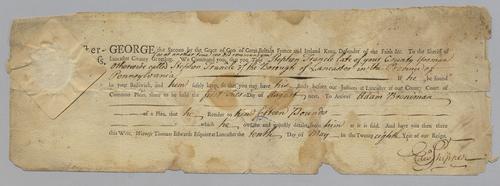 GEORGE the Second by the Grace of God of Great-Britain France and Ireland King, Defender of the Faith &c. To the Sheriff of
Lancaster County Greeting. We Command you, that you Take Stephen late of your County yeoman
otherwise called Stephen of the Borough of Lancaster in the Province of
Pennsylvania If he be found
in your Bailiwick, and him safely keep, so that you may have his Body before our Justices at Lancaster at our County Court of
Common Pleas, there to be held the first Day of August next. To Answer Adam
of a Plea, that he Render to him fifteen Pounds
which he oweth and unjustly detains from him as it is said. And have you then there
this Writ. Witness Thomas Edwards Esquire at Lancaster the tenth Day of May in the Twenty eighth Year of our Reign.
Edw Shippen